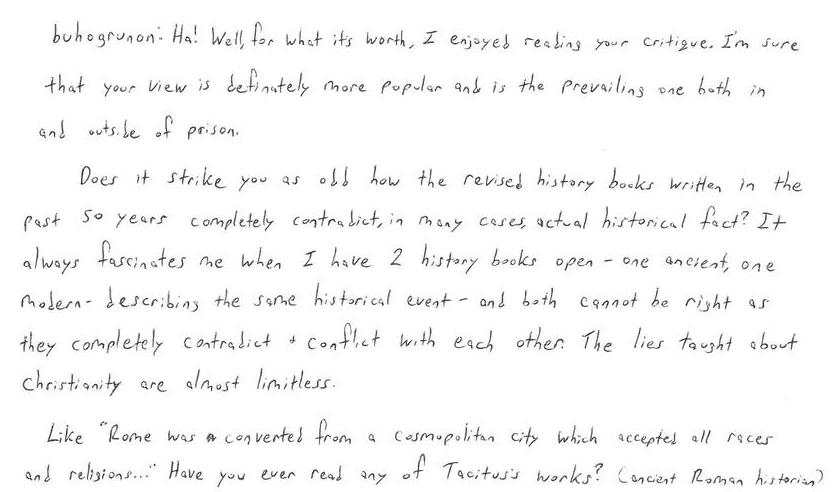 buhogrunon: Ha! Well, for what it's worth, I enjoyed reading your critique. I'm sure
that your view is definately more popular and is the prevailing one both in
and outside of prison.
Does it strike you as odd how the revised history books written in the
past 50 years completely contradict, in many cases, actual historical fact? It
always fascinates me when I have 2 history books open - one ancient, one
modern - describing the same historical event - and both cannot be right as
they completely contradict + conflict with each other. The lies taught about
Christianity are almost limitless.
Like "Rome was converted from a cosmopolitan city which accepted all races
and religions..." Have you ever read any of Tacitus's works? (ancient Roman historian)